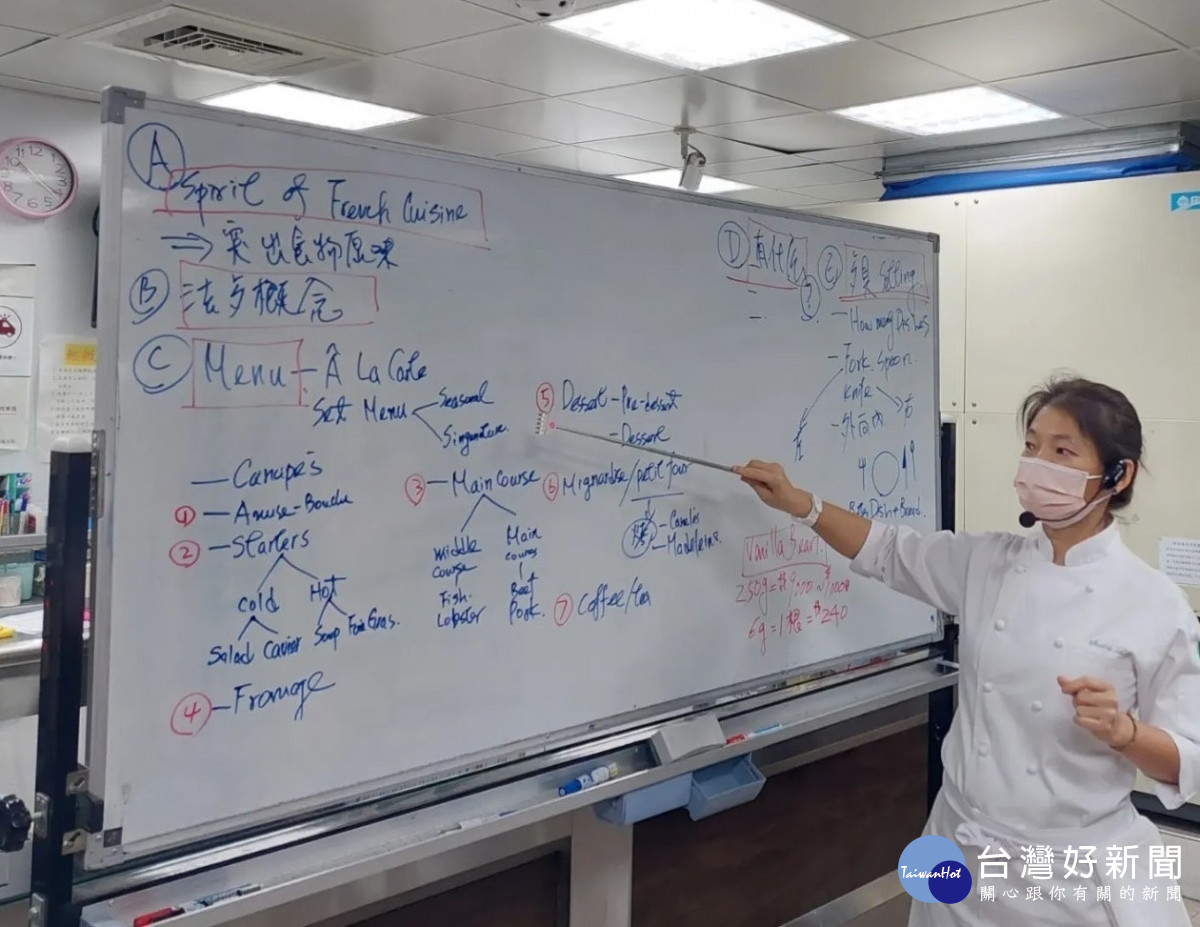 A
Spirit of French Cuisine
⇒ 突出食物原味
B 法式概念
C Menu - À La Carte
Set Menu
Seasonal
Singnature
- Canape's
① - Amuse-Bouche
② - Starters
Cold Hot
Salad Caviar Soup Foie Gras.
④ - Fromage
③ - Main Course
middle course
Main course
Fish.
Lobster
Beef
Pork.
⑤ Dessert - Pre-dessert
- Dessert
⑥ Mignardise / petit four
- Canelés
- Madeleine
⑦ Coffee/tea
D
- How many Dishes
- Fork. Spoon.
Knife
右
左
Setting
Vanilla Bean
250g = $9000 ~
6g = 1根 = $240
TaiwanHot
台灣好新聞
關心跟你有關的新聞